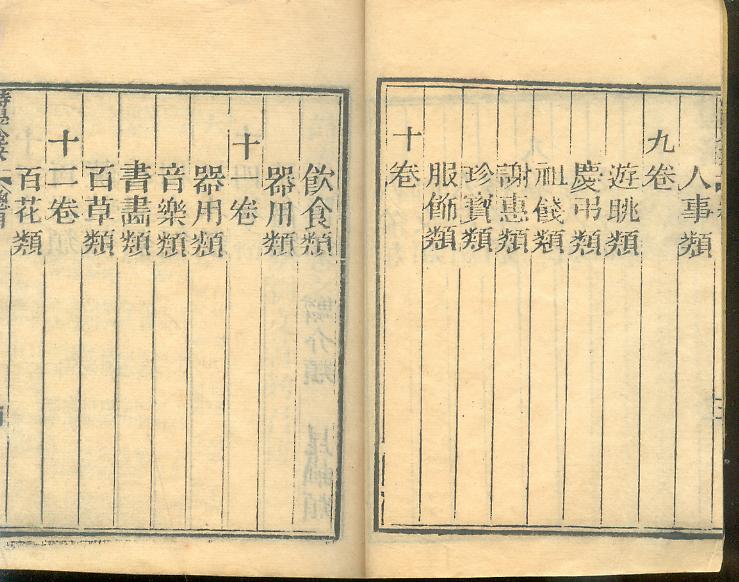 人事類
九卷
遊眺類
慶弔類
祖餞類
謝惠類
珍寶類
服飾類
十卷
飲食類
器用類
十一卷
器用類
音樂類
書畫類
百草類
十二卷
百花類